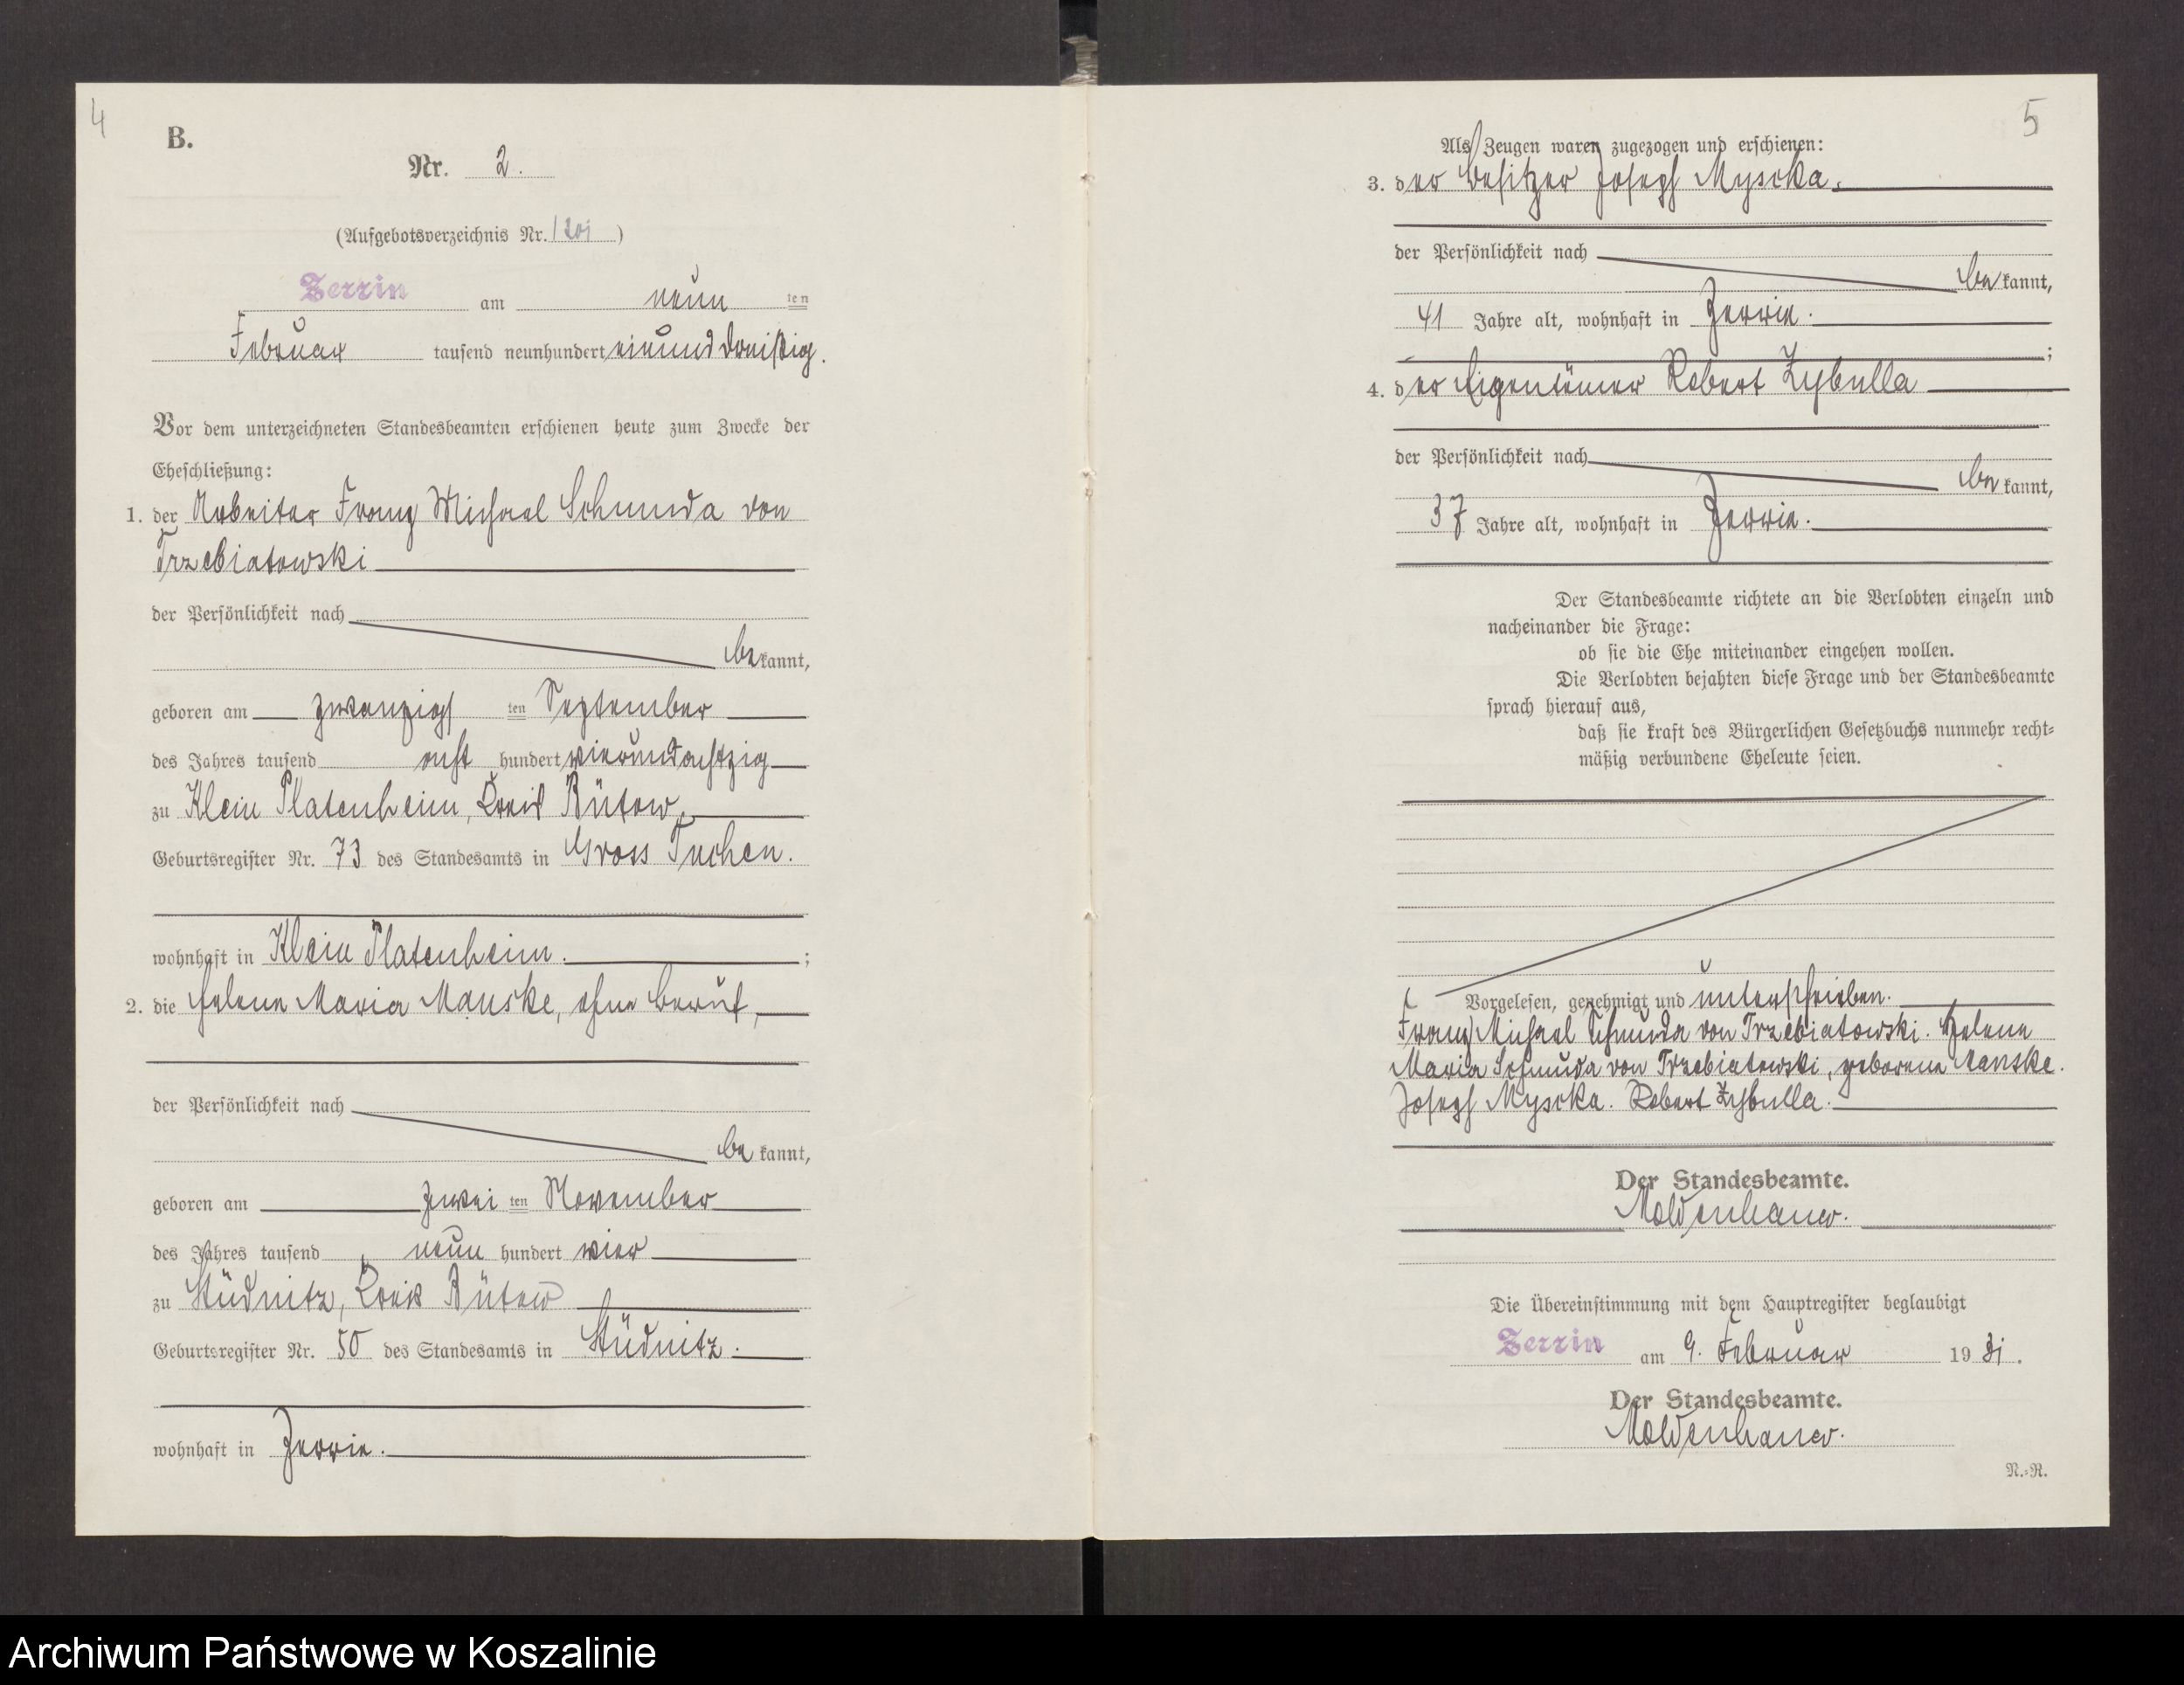 4
B.
Nr. 2.
(Aufgebotsverzeichnis Nr. )
Zerrin am neun ten
Februar tausend neunhundert einunddreißig.
Vor dem unterzeichneten Standesbeamten erschienen heute zum Zwecke der
Eheschließung:
1. der Arbeiter Franz Michael Schmuda von
Trzebiatowski
der Persönlichkeit nach
be kannt,
geboren am zwanzigs ten September
des Jahres tausend acht hundert vierundachtzig
zu Klein Platenheim, Kreis Bütow,
Geburtsregister Nr. 73 des Standesamts in Gross Tuchen.
wohnhaft in Klein Platenheim. ;
2. die Helene Maria Manske, ohne Beruf,
der Persönlichkeit nach
be kannt,
geboren am zwei ten November
des Jahres tausend neun hundert vier
zu Stüdnitz, Kreis Bütow
Geburtsregister Nr. 50 des Standesamts in Stüdnitz.
wohnhaft in Zerrin.
5
Als Zeugen waren zugezogen und erschienen:
3. der Besitzer Joseph Mysrka.
der Persönlichkeit nach
be kannt,
41 Jahre alt, wohnhaft in Zerrin.
;
4. der Eigentümer Robert Zybulla
der Persönlichkeit nach
be kannt,
37 Jahre alt, wohnhaft in Zerrin.
Der Standesbeamte richtete an die Verlobten einzeln und
nacheinander die Frage:
ob sie die Ehe miteinander eingehen wollen.
Die Verlobten bejahten diese Frage und der Standesbeamte
sprach hierauf aus,
daß sie kraft des Bürgerlichen Gesetzbuchs nunmehr recht-
mäßig verbundene Eheleute seien.
Vorgelesen, genehmigt und unterschrieben.
Franz Michael Schmuda von Trzebiatowski. Helene
Maria Schmuda von Trzebiatowski, geborene Manske.
Joseph Mysrka. Robert Zybulla.
Der Standesbeamte.
Moldenhauer.
Die Übereinstimmung mit dem Hauptregister beglaubigt
Zerrin am 9. Februar 19 31.
Der Standesbeamte.
Moldenhauer.
N.-R.
Archiwum Państwowe w Koszalinie